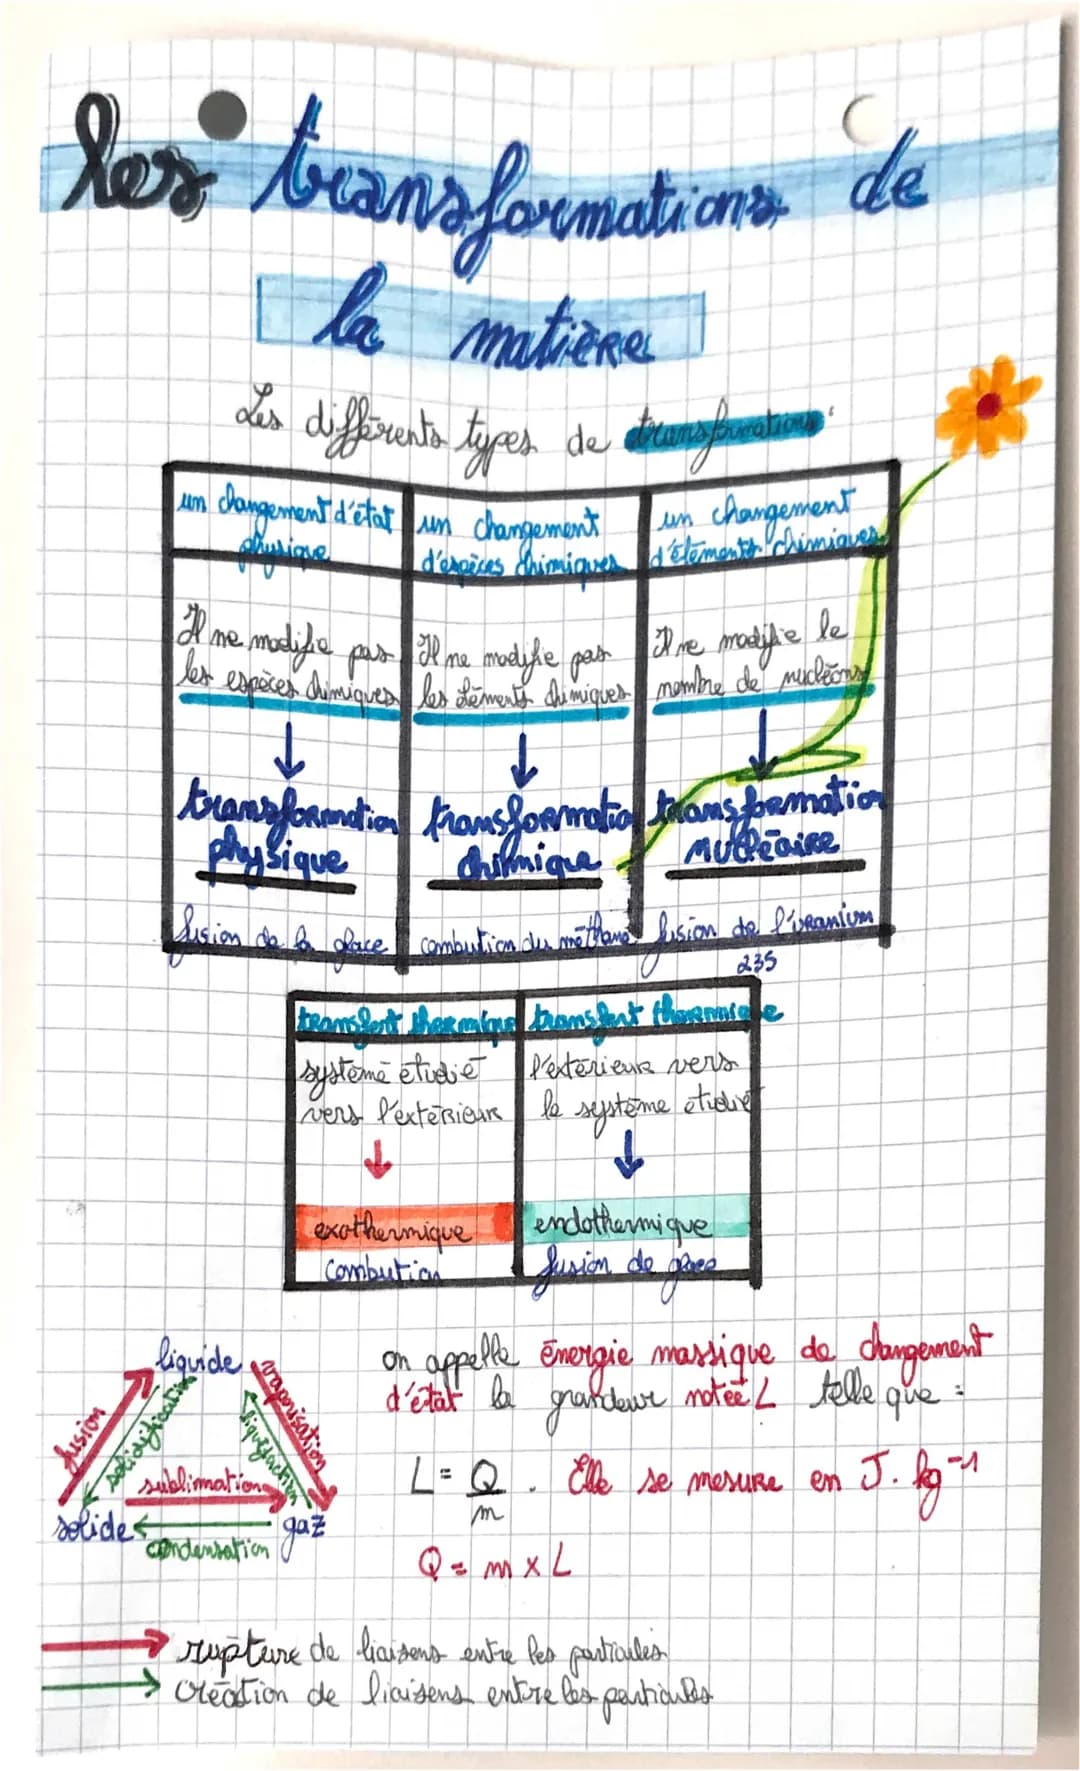 les transformations de
la matière
Les différents types de transformations
un changement d'état
physique
Il ne modifie pas
les espèces chimiques
transformation
physique
fusion de la glace
un changement
d'espèces chimiques
Il ne modifie pas
les éléments chimiques
transformatio
chimique
combution du méthane
un changement
d'éléments chimiques
Il ne modifie le
nombre de nucléons
transformation
nucléaire
fusion de l'uranium
235
transfert thermique
système étudié
vers l'extérieur
exothermique
combution
transfert thermique
l'extérieur vers
le système étudié
endothermique
fusion de glace
liquide
fusion
solidification
vaporisation
liquéfaction
sublimation
solide
gaz
condensation
on appelle énergie massique de changement
d'état la grandeur notée L telle que :
L = Q/m . Elle se mesure en J.kg⁻¹
Q = m x L
rupture de liaisons entre les particules
création de liaisons entre les particules